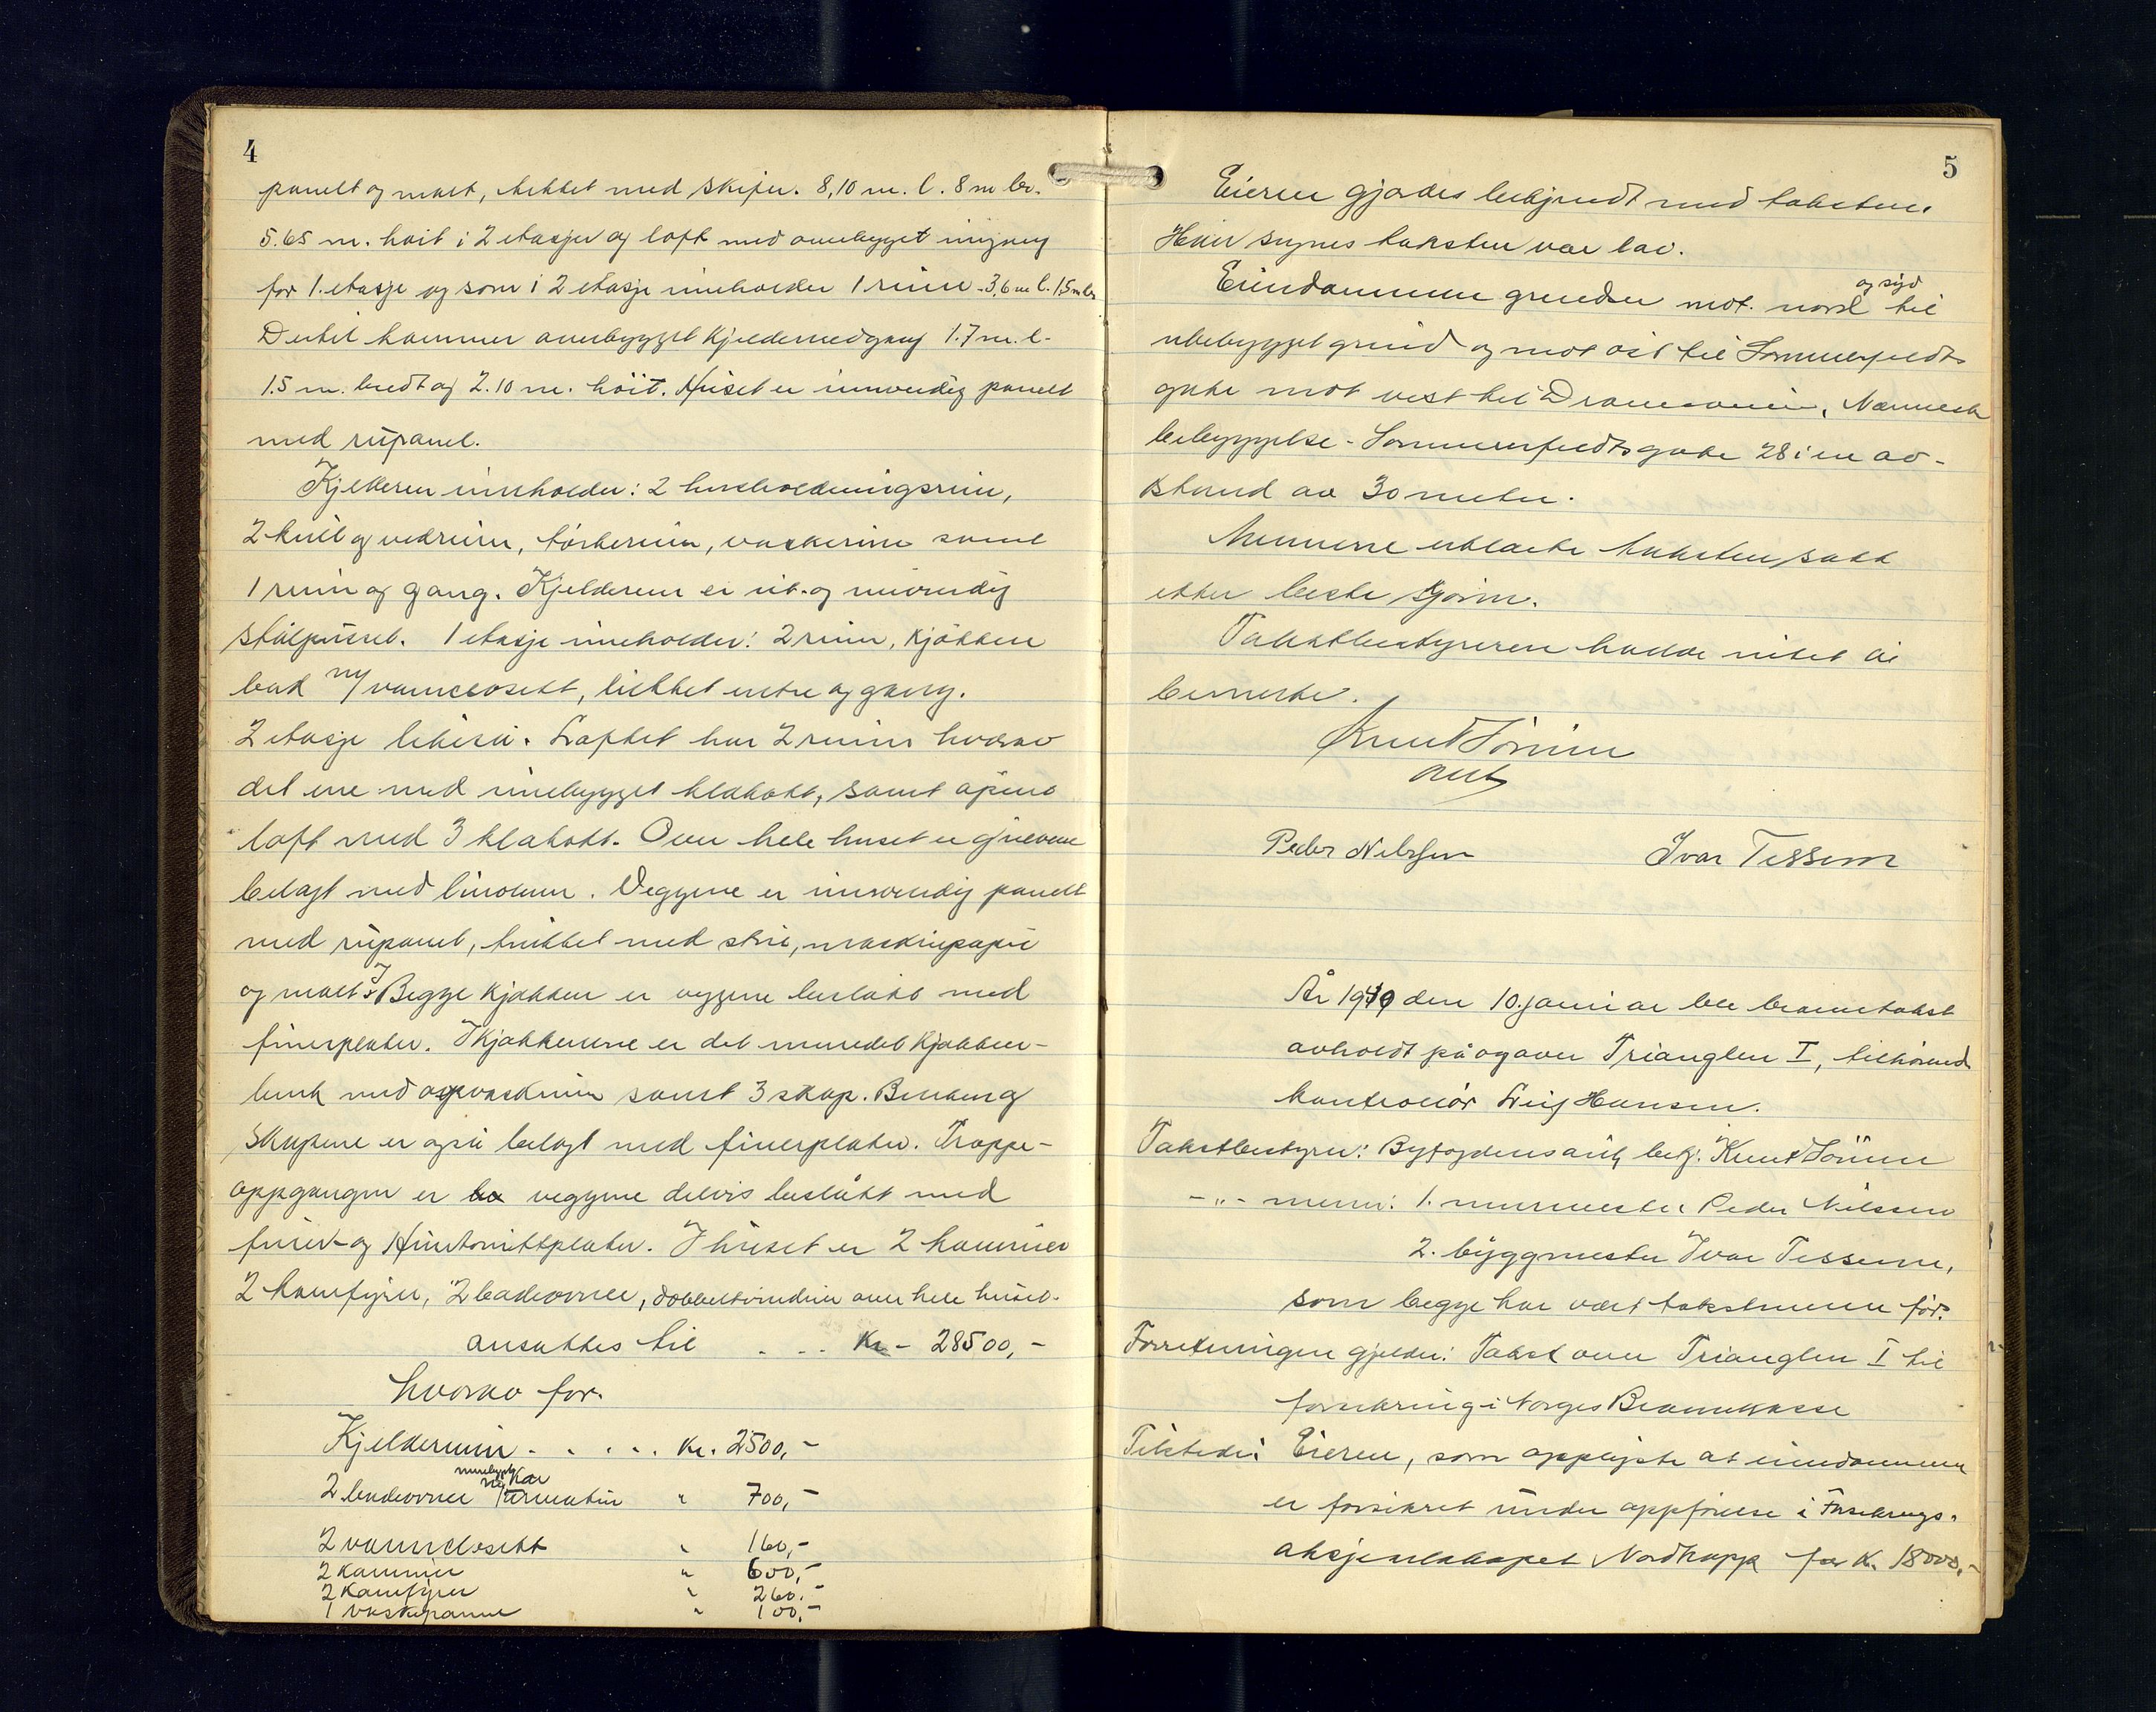 4
panelt og malt, tekket med skifer. 8,10 m. l. 8 m br.
5.65 m. høit i 2 etasjer og loft med overbygget inngang
for 1. etasje og som i 2 etasje inneholder 1 rum - 3,6 m l. 1,5 m br
Dertil kommer overbygget kjeldernedgang 1.7 m. l.
1.5 m. bredt og 2.10 m. høit. Huset er innvendig panelt
med rupanel.
Kjelderen inneholder: 2 husholdningsrum,
2 kull og vedrum, tørkerum, vaskerum samt
1 rum og gang. Kjelderen er ut- og innvendig
stålpusset. 1 etasje inneholder: 2 rum, kjøkken
bad m/ vannclosett, lukket entre og gang.
2 etasje likeså. Loftet har 2 rum hvorav
det ene med innebygget klækott, samt åpent
loft med 3 klækott. Over hele huset er gulvene
belagt med linoleum. Veggene er innvendig panelt
med rupanel, trukket med strie, maskinpapir
og malt. I Begge kjøkken er veggene beslått med
finerplater. I kjøkkenene er det innredet kjøkken-
benk med oppvaskkum samt 3 skap. Benk og
skapene er også belagt med finerplater. Trappe-
oppgangen er veggene delvis beslått med
finer- og Huntonittplater. I huset er 2 kaminer
2 komfyrer, 2 badeovner, dobbeltvinduer over hele huset.
ansettes til . . . Kr - 28500,-
hvorav for.
Kjelderrum - . . . . Kr. 2500,-
innebygd kar
2 badeovner m/ armatur " 700,-
2 vannclosett " 160,-
2 kaminer " 600,-
2 komfyrer " 260.-
1 vaskepanne " 100,-
5
Eieren gjordes bekjendt med taksten.
Han synes taksten var lav.
og syd
Eiendommen grenser mot nord til
ubebygget grund og mot øst til Sommerfeldts
gate mot vest til Dramsveien. Nærmeste
bebyggelse - Sommerfeldts gate 28 i en av-
stand av 30 meter.
Mennene erklærte taksten satt
etter beste skjønn.
Takstbestyreren hadde intet å
bemerke.
Knut Tönnin
aut
Peder Nilssen Ivar Tessem
År 1940 den 10. januar ble branntakst
avholdt på og over Trianglen I, tilhørende
kontrollør Leif Hansen.
Takstbestyrer: Byfogdens aut. betj. Knut Tönnin
-"- menn: 1. murmester Peder Nilssen
2. byggmester Ivar Tessem,
som begge har vært takstmenn før.
Forretningen gjelder: Takst over Trianglen I til
forsikring i Norges Brannkasse
Tilstede: Eieren, som opplyste at eiendommen
er forsikret under oppførelse i Forsikrings-
aksjeselskapet Nordkapp for Kr. 18000,-